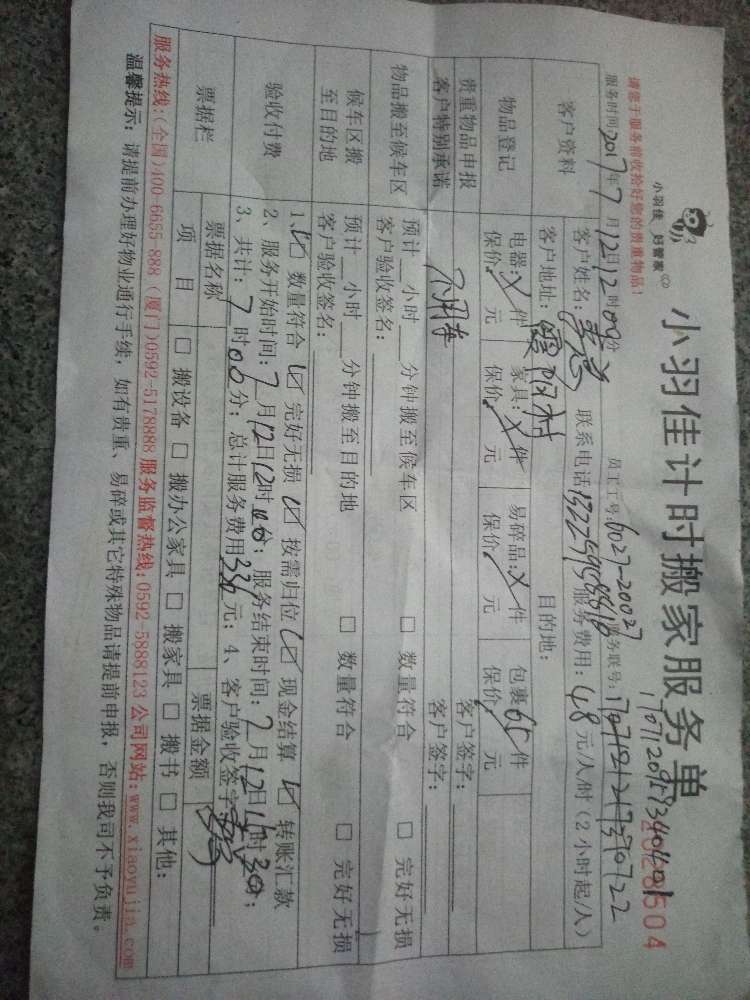 小羽佳 好管家
小羽佳计时搬家服务单
请您于服务前收拾好您的贵重物品!
服务时间2017年7月12日12时00分 员工工号:6027-20027 服务联号:
客户资料 客户姓名: 联系电话 服务费用:48元/人/时(2小时起/人)
客户地址: 目的地:
物品登记 电器:X件 家具:X件 易碎品:X件 包裹65件
保价/元 保价/元 保价/元 保价/元
贵重物品申报 客户签字:
客户特别承诺 客户签字:
物品搬至候车区 预计__小时__分钟搬至候车区 □ 数量符合 □ 完好无损
客户验收签名:
候车区搬至目的地 预计__小时__分钟搬至目的地 □ 数量符合 □ 完好无损
客户验收签名:
验收付费 1、☑ 数量符合 ☑ 完好无损 ☑ 按需归位 ☑ 现金结算 ☑ 转账汇款
2、服务开始时间:7月12日12时00分;服务结束时间:7月12日 时30分;
3、共计:7时00分;总计服务费用336元;4、客户验收签字
票据栏 票据名称 票据金额
项 目 □ 搬设备 □ 搬办公家具 □ 搬家具 □ 搬书 □ 其他:
服务热线:(全国)400-6655-888 (厦门)0592-5178888 服务监督热线:0592-5888123 公司网站:www.xiaoyujia.com
温馨提示:请提前办理好物业通行手续,如有贵重、易碎或其它特殊物品请提前申报,否则我司不予负责。